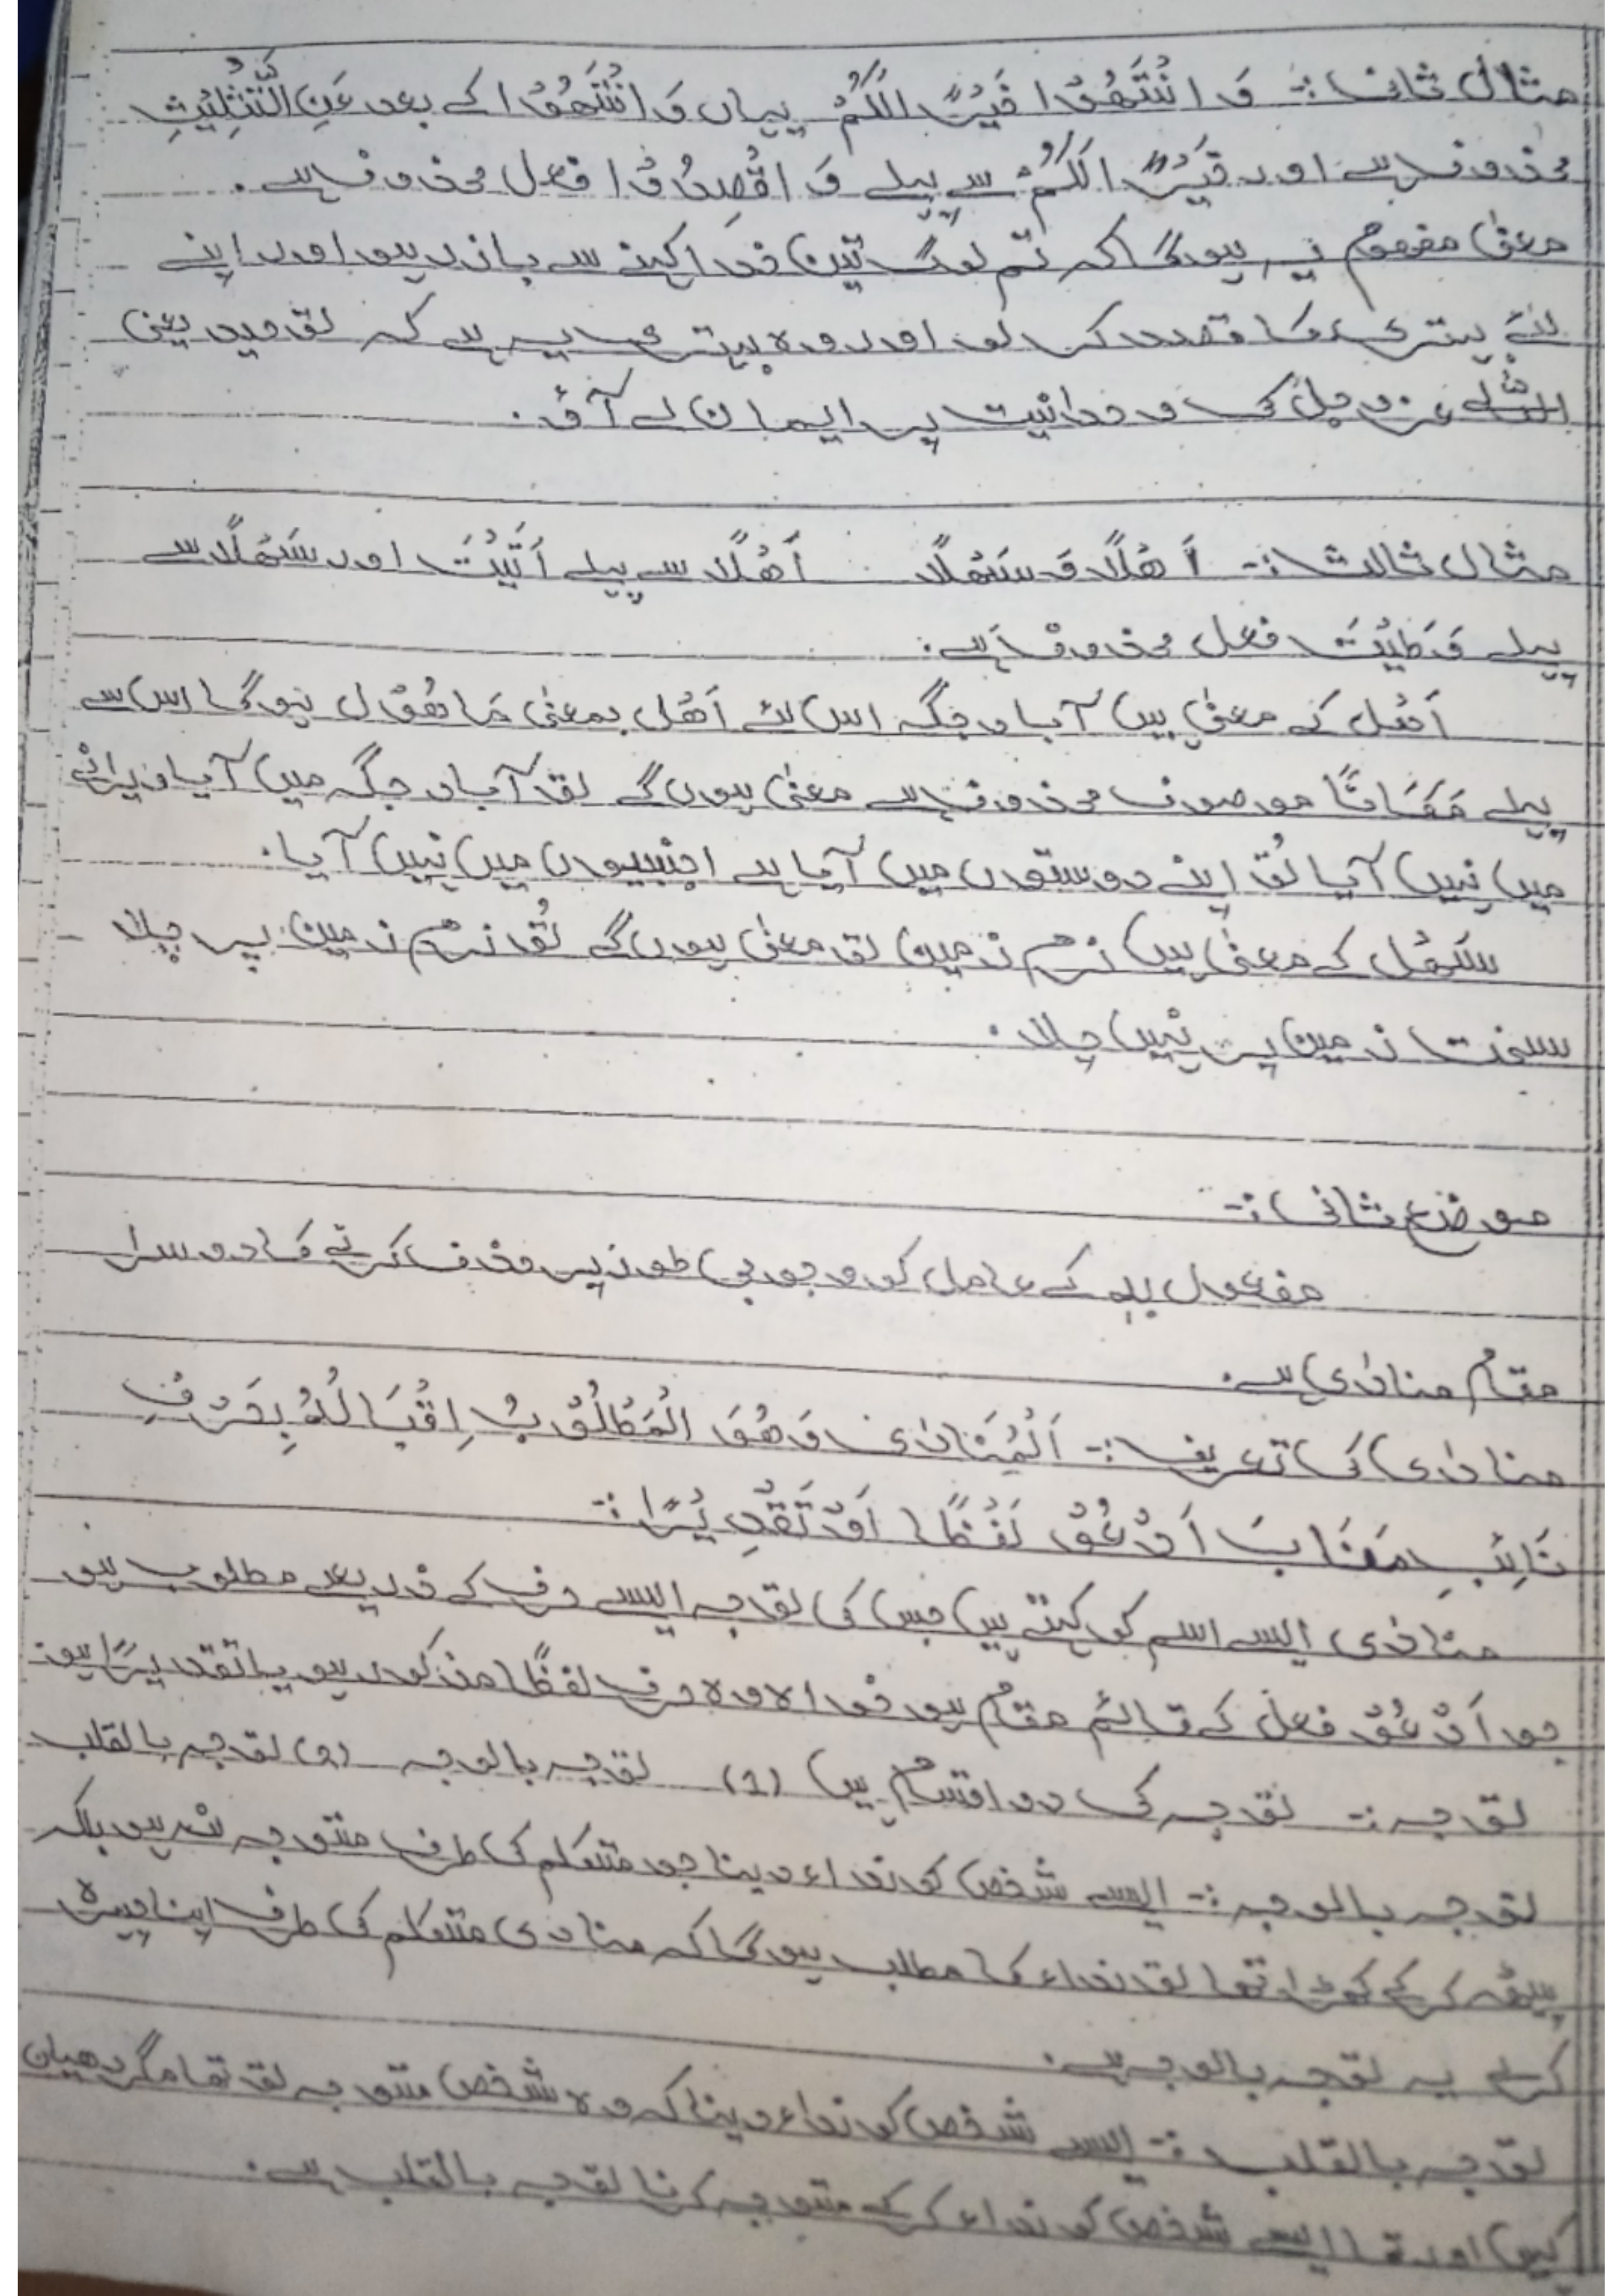 مثال ثانی :- وَ انْتَهُوْا خَيْرًا لَّكُمْ یہاں وَ انْتَهُوْا کے بعد عَنِ التَّثْلِيْثِ
محذوف ہے اور خَيْرًا لَّكُمْ سے پہلے وَ اقْصِدُوْا فعل محذوف ہے .
معنیٰ مفہوم یہ ہوگا کہ تم لوگ تین خدا کہنے سے باز رہو اور اپنے
لئے بہتری کا قصد کر لو اور وہ بہتری یہ ہے کہ توحید یعنی
اللہ عزوجل کی وحدانیت پر ایمان لے آؤ .
مثال ثالث :- أَهْلًا وَ سَهْلًا أَهْلًا سے پہلے أَتَيْتَ اور سَهْلًا سے
پہلے وَطِيْتَ فعل محذوف ہے .
أهْل کے معنیٰ ہیں آباد جگہ اس لئے أَهْل بمعنیٰ مَاهُوْل ہوگا اس سے
پہلے مَكَانًا موصوف محذوف ہے معنیٰ ہوں گے تو آباد جگہ میں آیا ویرانے
میں نہیں آیا تو اپنے دوستوں میں آیا ہے اجنبیوں میں نہیں آیا .
سَهْل کے معنیٰ ہیں نرم زمین تو معنیٰ ہوں گے تُو نرم زمین پر چلا
سخت زمین پر نہیں چلا .
موضع ثانی :-
مفعول بہ کے عامل کو وجوبی طور پر حذف کرنے کا دوسرا
مقام منادٰی ہے .
منادٰی کی تعریف :- اَلْمُنَادٰى وَ هُوَ الْمَطْلُوْبُ اِقْبَالُهٗ بِحَرْفٍ
نَائِبٍ مَنَابَ اَدْعُوْ لَفْظًا اَوْ تَقْدِيْرًا :-
منادٰی ایسے اسم کو کہتے ہیں جس کی توجہ ایسے حرف کے ذریعے مطلوب ہو
جو اَدْعُوْ فعل کے قائم مقام ہو خواہ وہ حرف لفظًا مذکور ہو یا تقدیرًا ہو .
توجہ :- توجہ کی دو اقسام ہیں (1) توجہ بالوجہ (2) توجہ بالقلب
توجہ بالوجہ :- ایسے شخص کو نداء دینا جو متکلم کی طرف متوجہ نہ ہو بلکہ
پیٹھ کر کے کھڑا تھا تو نداء کا مطلب ہوگا کہ منادی متکلم کی طرف اپنا چہرہ
کرلے یہ توجہ بالوجہ ہے .
توجہ بالقلب :- ایسے شخص کو نداء دینا کہ وہ شخص متوجہ تو تھا مگر دھیان
کہیں اور تھا ایسے شخص کو نداء کر کے متوجہ کرنا توجہ بالقلب ہے .